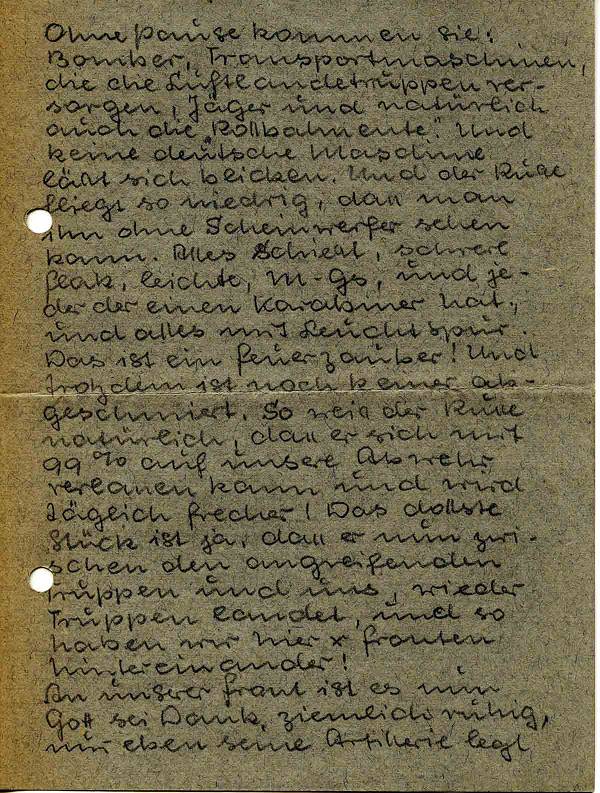 Ohne Pause kommen sie:
Bomber, Transportmaschinen,
die die Luftlandetruppen ver-
sorgen, Jäger und natürlich
auch die "Rollbahnente". Und
keine deutsche Maschine
läßt sich blicken. Und der Ruße
fliegt so niedrig, daß man
ihn ohne Scheinwerfer sehen
kann. Alles schießt, schwere
Flak, leichte, M-Gs, und je-
der der einen Karabiner hat,
und alles mit Leuchtspur.
Das ist ein Feuerzauber! Und
trotzdem ist noch keiner ab-
geschmiert. So weiß der Ruße
natürlich, daß er sich mit
99% auf unsere Abwehr
verlassen kann und wird
täglich frecher! Das dollste
Stück ist ja, daß er nun zwi-
schen den angreifenden
Truppen und uns, wieder
Truppen landet, und so
haben wir hier x Fronten
hintereinander!
An unserer Front ist es nun
Gott sei Dank, ziemlich ruhig,
nur eben seine Artillerie legt